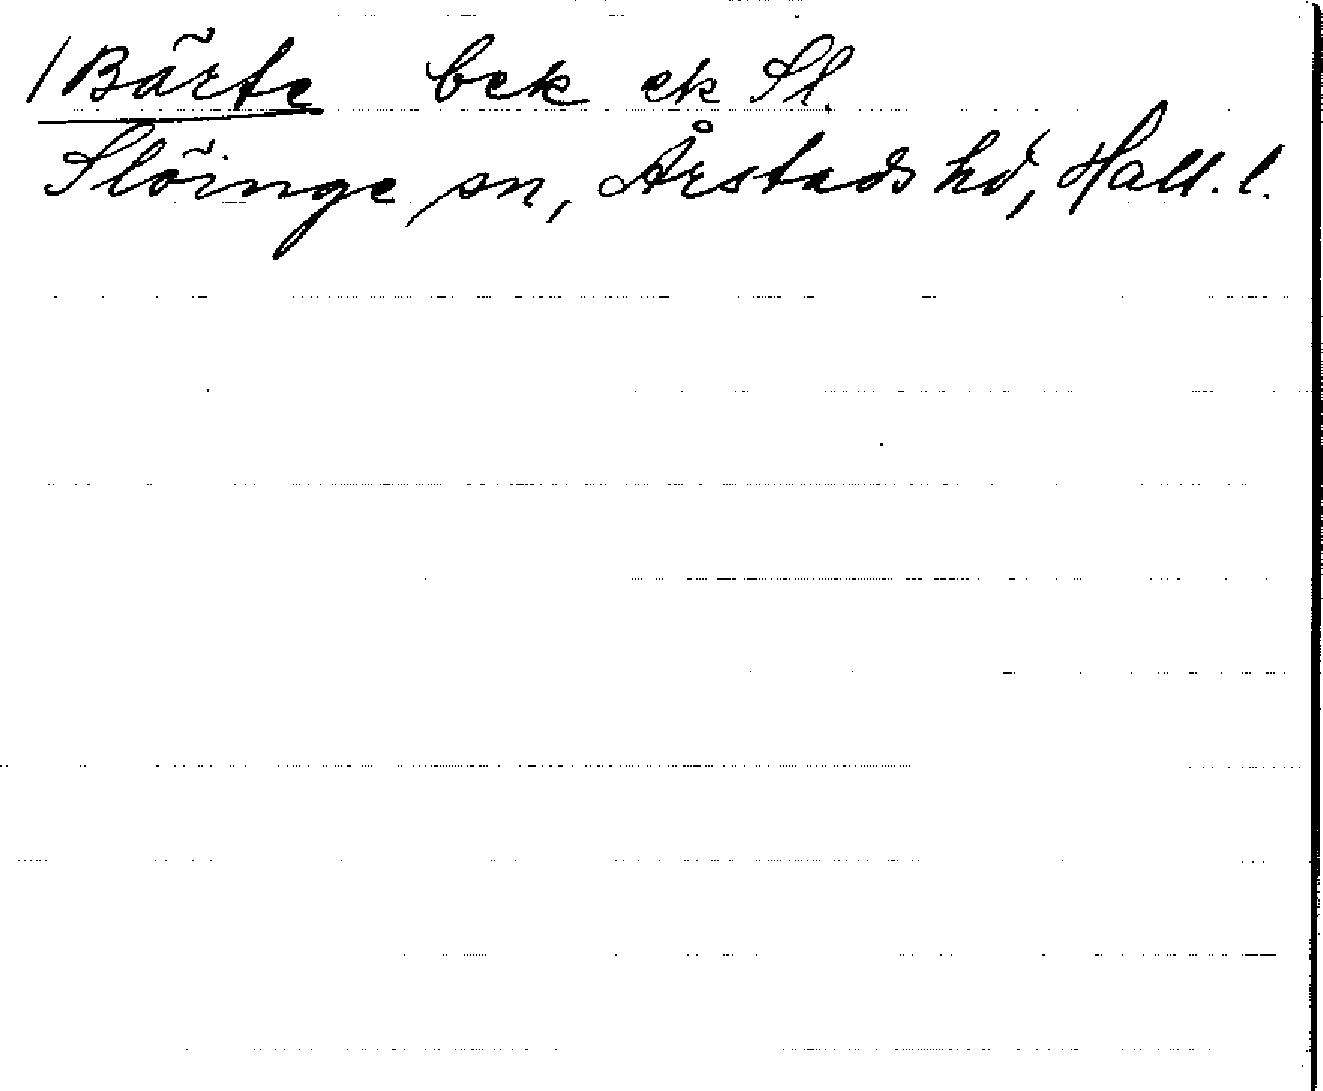 /Bärte bek ek Sl.
Slöinge sn, Årstads hd, Hall. l.